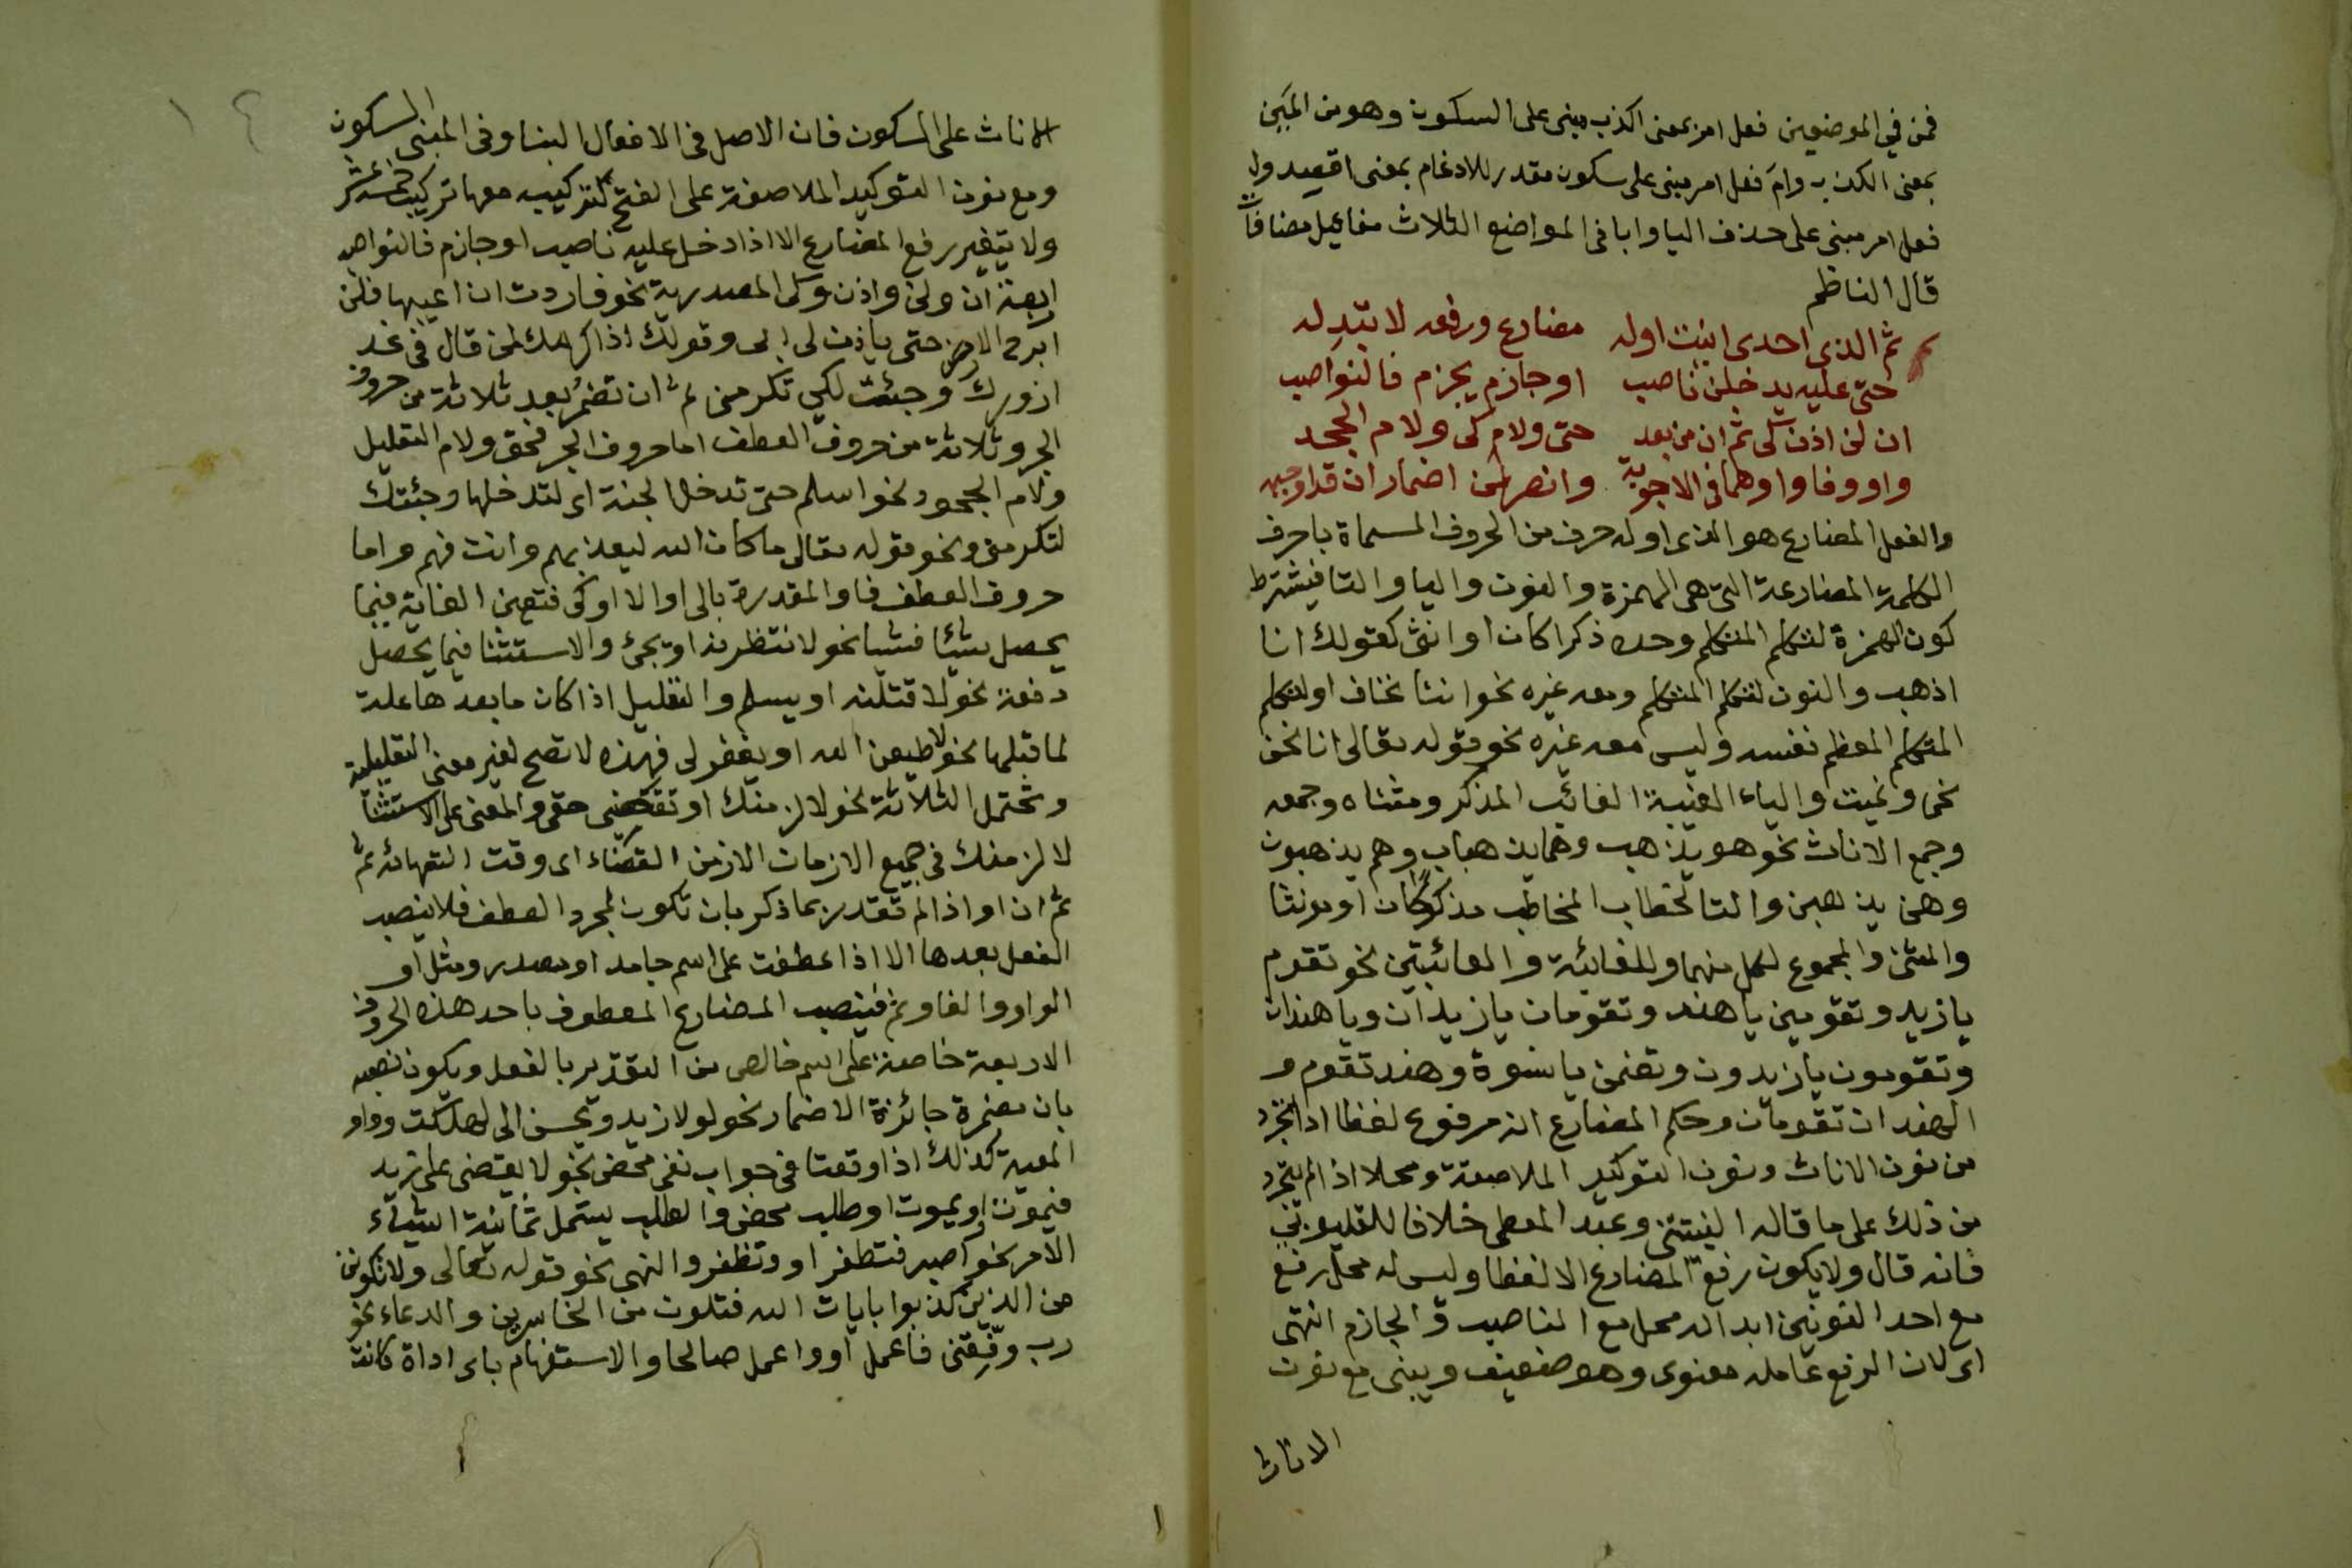 فمن في الموضعين فعل امر بمعنى اكذب مبني على السكون وهو من المين
بمعنى الكذب وام فعل امر مبني على سكون مقدر للادغام بمعنى اقصد ول
فعل امر مبني على حذف اليا وابا في المواضع الثلاث مفاعيل مضافا
قال الناظم
ثم الذي احدى انيت اوله مضارع ورفعه لا تبدله
حتى عليه يدخلن ناصب او جازم يجزم فالنواصب
ان لن اذن كي ثم ان من بعد حتى ولام كي ولام الجحد
واو وفا واو وهما في الاجوبة وانصر لمن اضمار ان قد اوجبه
والفعل المضارع هو الذي اوله حرف من الحروف المسماة باحرف
الكلمة المضارعة التي هي الهمزة والنون واليا والتا فيشترط
كون الهمزة لتكلم المتكلم وحده ذكرا كان او انثى كقولك انا
اذهب والنون لتكلم المتكلم ومعه غيره نحو اننا نخاف او لتكلم
المتكلم المعظم نفسه وليس معه غيره نحو قوله تعالى انا نحن
نحي ونميت والياء الغيبة الغائب المذكر ومثناه وجمعه
وجمع الاناث نحو هو يذهب وهما يذهبان وهم يذهبون
وهن يذهبن والتا لخطاب المخاطب مذكرا كان او مونثا
والمثنى والمجموع لكل منهما وللغائبة والغائبتين نحو تقوم
يا زيد وتقومين يا هند وتقومان يا زيدان ويا هندان
وتقومون يا زيدون وتقمن يا نسوة وهند تقوم و
الهندان تقومان وحكم المضارع انه مرفوع لفظا اذا تجرد
من نون الاناث ونون التوكيد الملاصقة ومحلا اذا لم يتجرد
من ذلك على ما قاله النبتيتي وعبد المعطي خلافا للقليوبي
فانه قال ولا يكون رفع المضارع الا لفظا وليس له محل رفع
مع احد النونين ابدا له محل مع الناصب والجازم انتهى
اى لان الرفع عامله معنوى وهو ضعيف ويبنى مع نون
الاناث
الاناث على السكون فان الاصل في الافعال البنا وفي المبنى السكون
ومع نون التوكيد الملاصقة على الفتح لتركيبه معها تركيب خمسة عشر
ولا يتغير رفع المضارع الا اذا دخل عليه ناصب او جازم فالنواصب
اربعة ان ولن واذن وكى المصدرية نحو فاردت ان اعيبها فلن
ابرح الارض حتى ياذن لى ابى وقولك اذا اكرمك لمن قال في غد
ازورك وجئت لكي تكرمنى ثم ان تضمر بعد ثلاثة من حروف
الجر وثلاثة من حروف العطف اما حروف الجر فحتى ولام التعليل
ولام الجحود نحو اسلم حتى تدخل الجنة اى لتدخلها وجئتك
لتكرمنى ونحو قوله تعالى ما كان الله ليعذبهم وانت فيهم واما
حروف العطف فاو المقدرة بالى او الا او كى فتعين الغاية فيما
يحصل شيئا فشيا نحو لانتظرنه او يجئ والاستثنا فيما يحصل
دفعة نحو لاقتلنه او يسلم والتعليل اذا كان ما بعدها علة
لما قبلها نحو لاطيعن الله او يغفر لى فهذه لا تصح لغير معنى التعليلية
وتحتمل الثلاثة نحو لالزمنك او تقضنى حقى والمعنى على الاستثنا
لالزمنك في جميع الازمان الا زمن القضاء اى وقت انتهائه ثم
ثم ان او اذا لم تقدر بما ذكر بان تكون لمجرد العطف فلا ينصب
الفعل بعدها الا اذا عطفت على اسم جامد او مصدر ومثل او
الواو والفا وثم فينصب المضارع المعطوف باحد هذه الحروف
الاربعة خاصة على اسم خالص من التقدير بالفعل ويكون نصبه
بان مضمرة جائزة الاضمار نحو لولا زيد ويحسن الى لهلكت وواو
المعية كذلك اذا وقعتا في جواب نفى محض نحو لا يقضى على زيد
فيموت او يموت او طلب محض والطلب يشمل ثمانية اشياء
الامر نحو اصبر فتظفر او وتظفر والنهى نحو قوله تعالى ولا تكونن
من الذين كذبوا بايات الله فتكون من الخاسرين والدعاء نحو
رب وفقنى فاعمل او واعمل صالحا والاستفهام باى اداة كانت